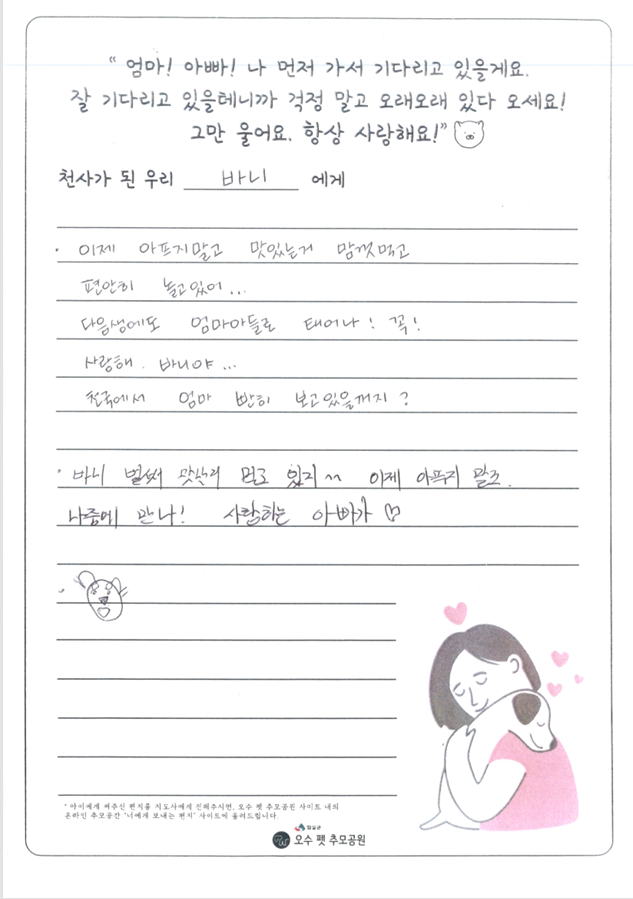 “ 엄마! 아빠! 나 먼저 가서 기다리고 있을게요.
잘 기다리고 있을테니까 걱정 말고 오래오래 있다 오세요!
그만 울어요. 항상 사랑해요!”
천사가 된 우리 바니 에게
· 이제 아프지말고 맛있는거 맘껏먹고
편안히 놀고있어...
다음생에도 엄마아들로 태어나! 꼭!
사랑해. 바니야...
천국에서 엄마 빤히 보고있을꺼지?
· 바니 벌써 먹고 있지^^ 이제 아프지 말고.
나중에 만나! 사랑하는 아빠가 ♡
* 아이에게 써주신 편지를 지도사에게 전해주시면, 오수 펫 추모공원 사이트 내의
온라인 추모공간 '너에게 보내는 편지' 사이트에 올려드립니다.
임실군
오수 펫 추모공원